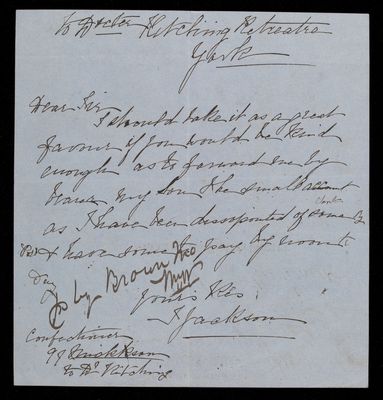 To Docter Kitching Retreatre
York
Dear Sir
I should take it as a great
favour if you would be kind
enough as to forward me by
bearer my Son the small account
as I have been dissopointed of some
& have some to pay by noon to
Day
Yours Res
J Jackson
Confectioner
to Dr Kitching